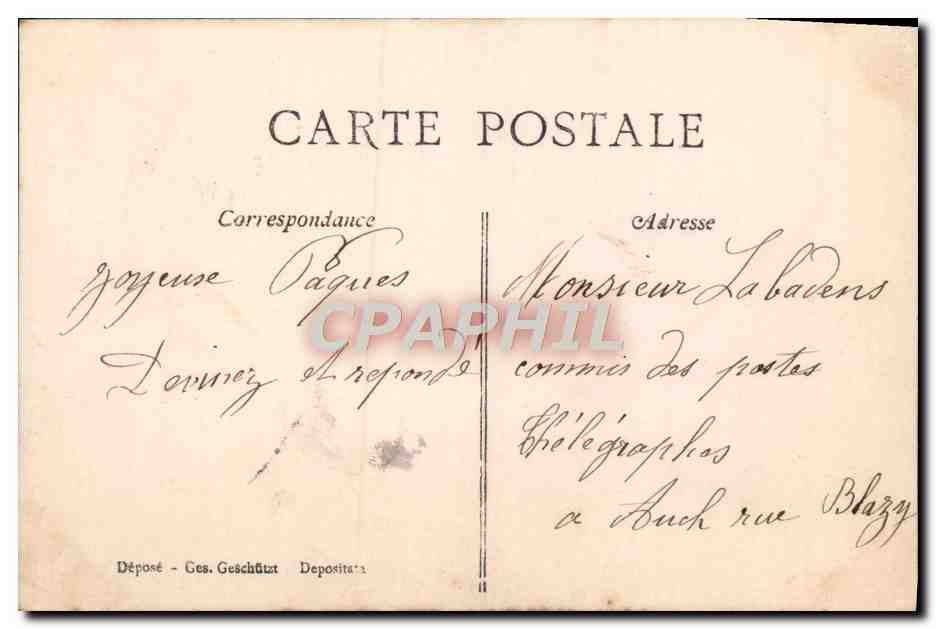 CARTE POSTALE
Correspondance
joyeuse Pâques
Devinez et reponde
Adresse
Monsieur Labadens
commis des postes
Thélégraphes
a Auch rue Blazy
Déposé - Ges. Geschützt Depositata
CPAPHIL